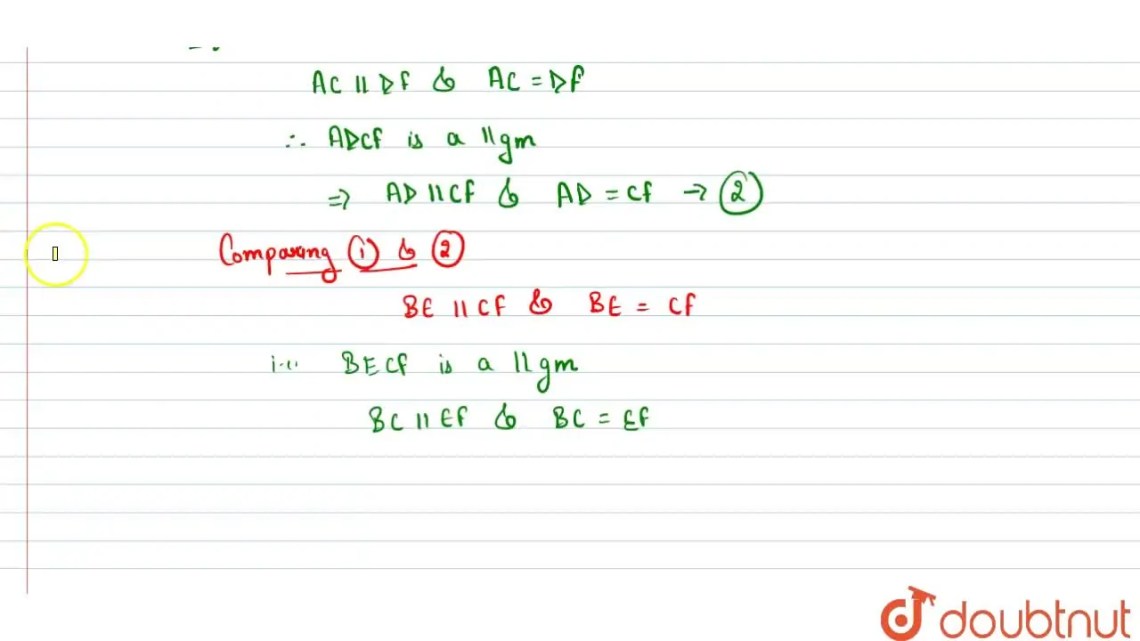 AC || DF & AC = DF
∴ ADCF is a ||gm
=> AD || CF & AD = CF → ②
Comparing ① & ②
BE || CF & BE = CF
i.e. BECF is a ||gm
BC || EF & BC = EF
doubtnut